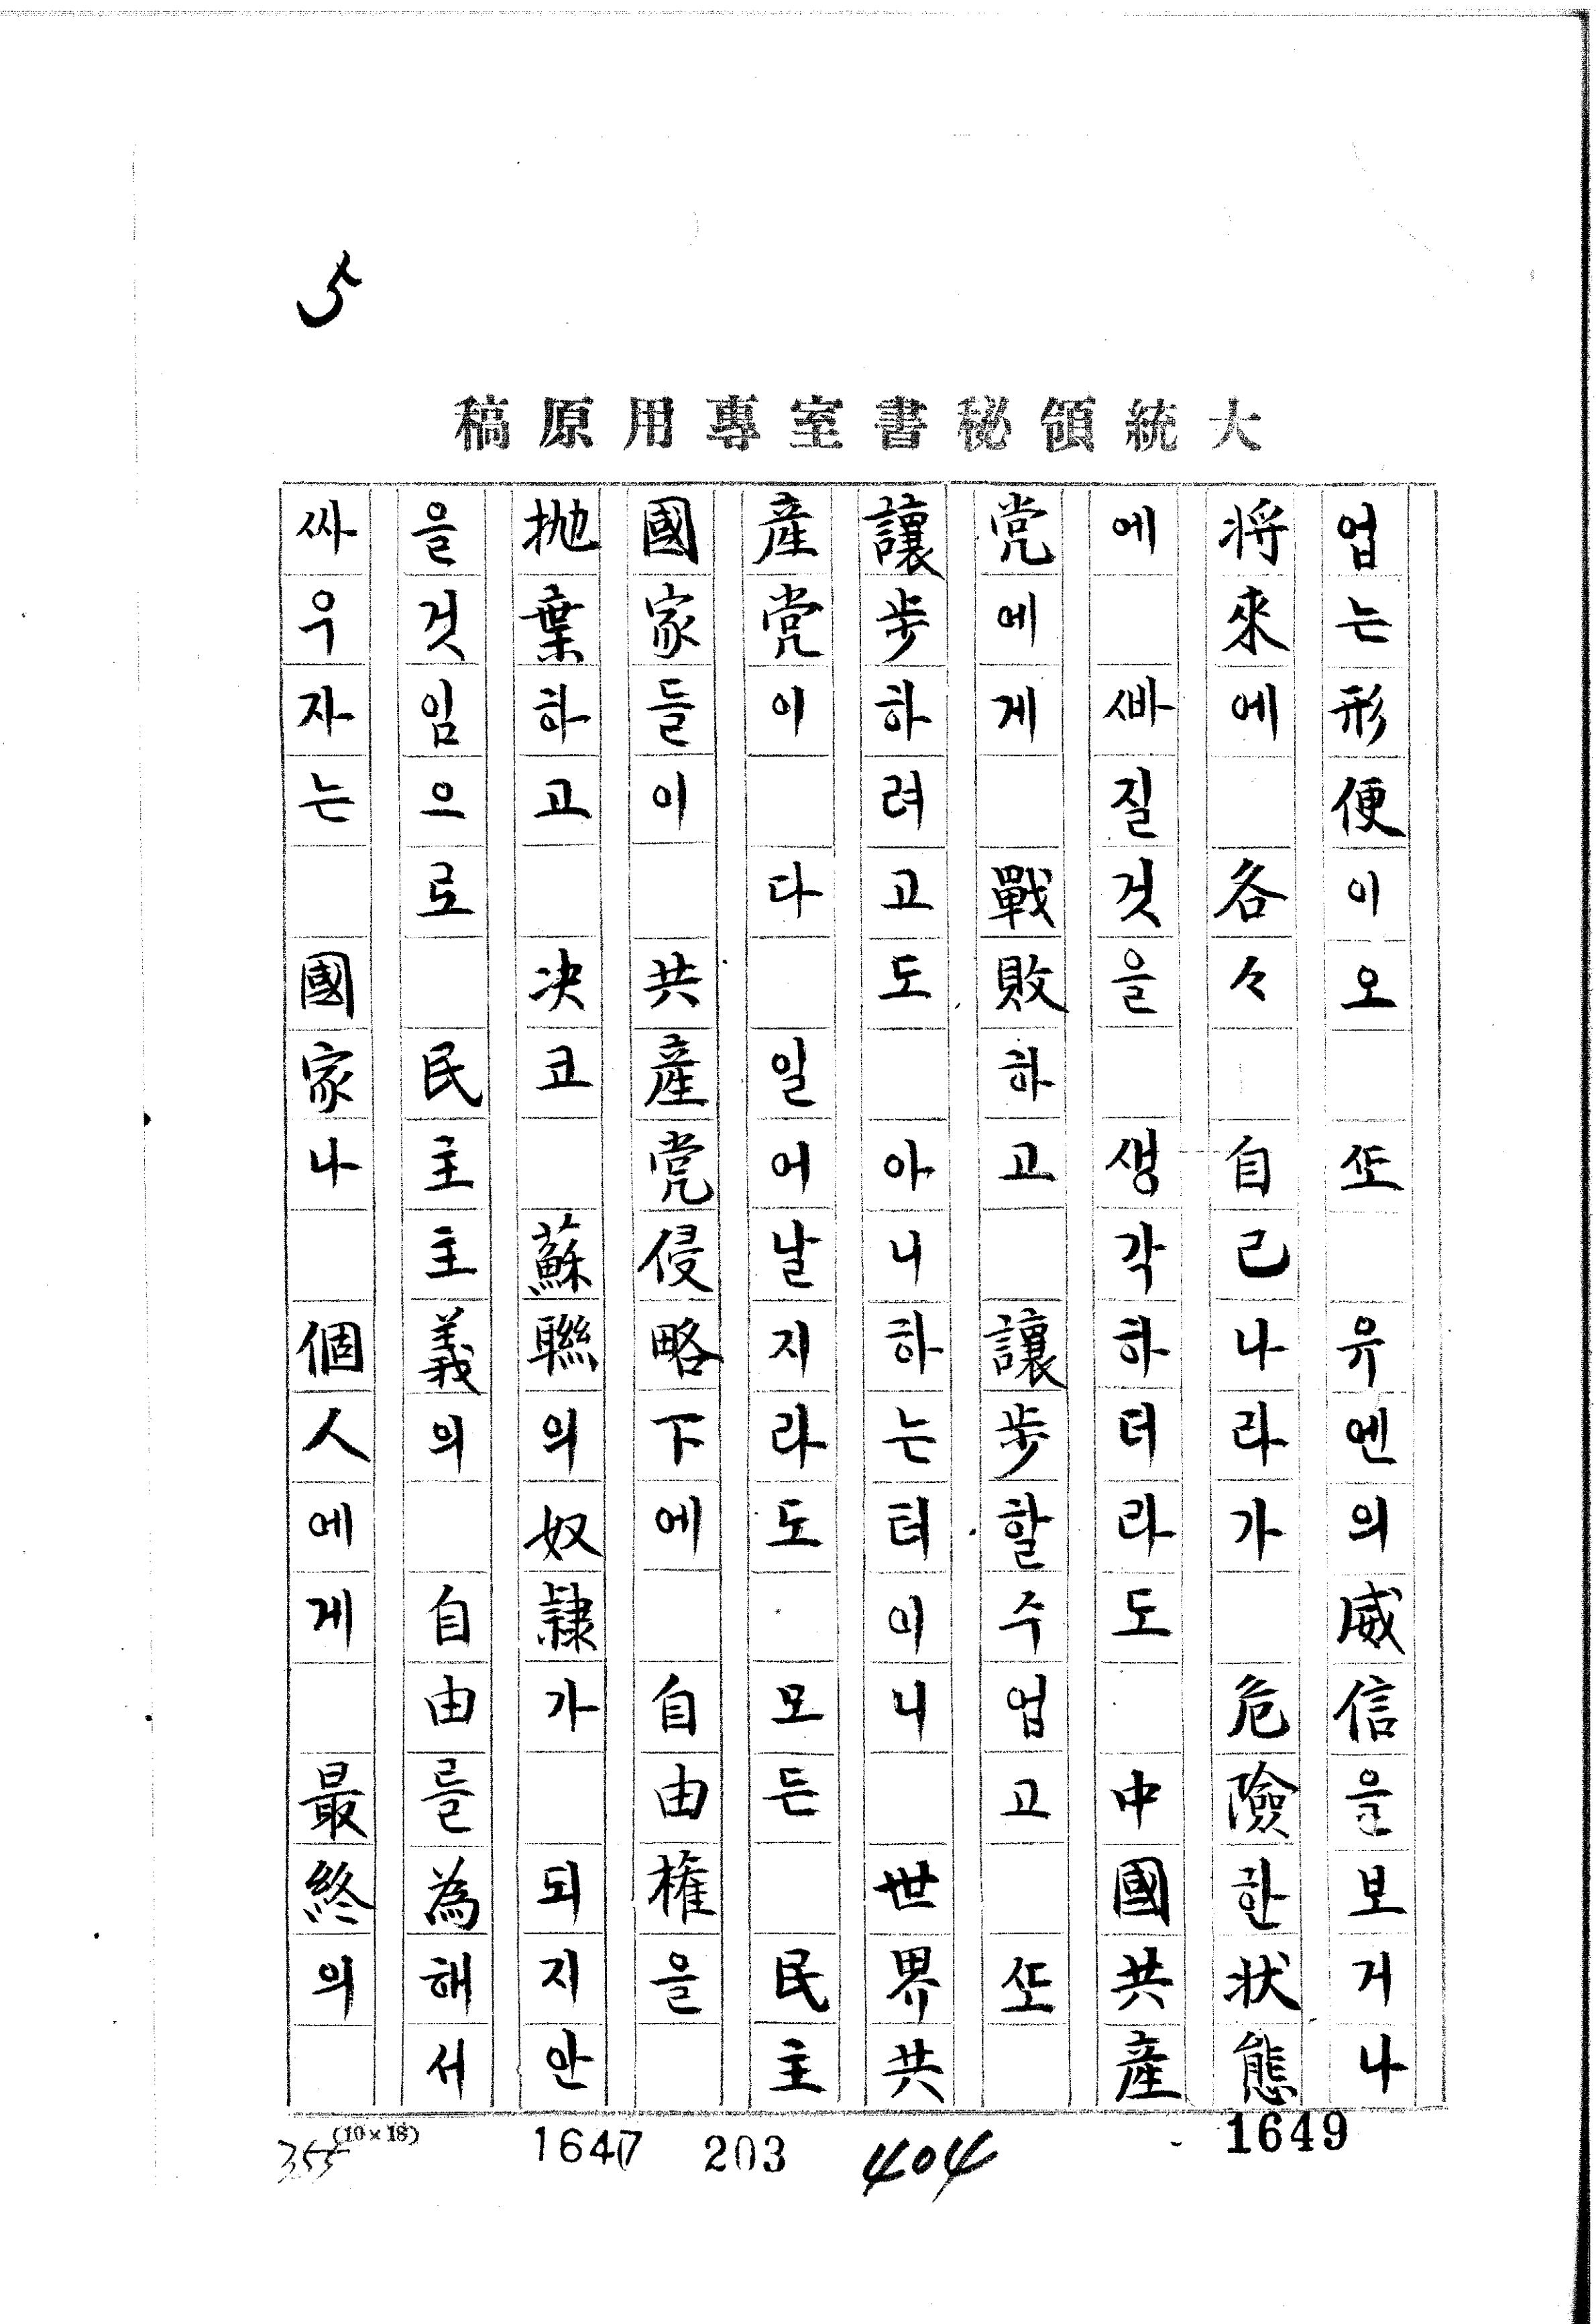 5
大統領秘書室專用原稿
업는形便이오 ᄯᅩ 유엔의威信을보거나
將來에 各々 自己나라가 危險한状態
에 ᄲᅡ질것을 생각하더라도 中國共産
党에게 戰敗하고 讓步할수업고 ᄯᅩ
讓步하려고도 아니하는터이니 世界共
産党이 다 일어날지라도 모든 民主
國家들이 共産党侵略下에 自由權을
抛棄하고 决코 蘇聯의奴隷가 되지안
을것임으로 民主主義의 自由를為해서
싸우자는 國家나 個人에게 最終의
(10×18)
355
1647
203
404
1649